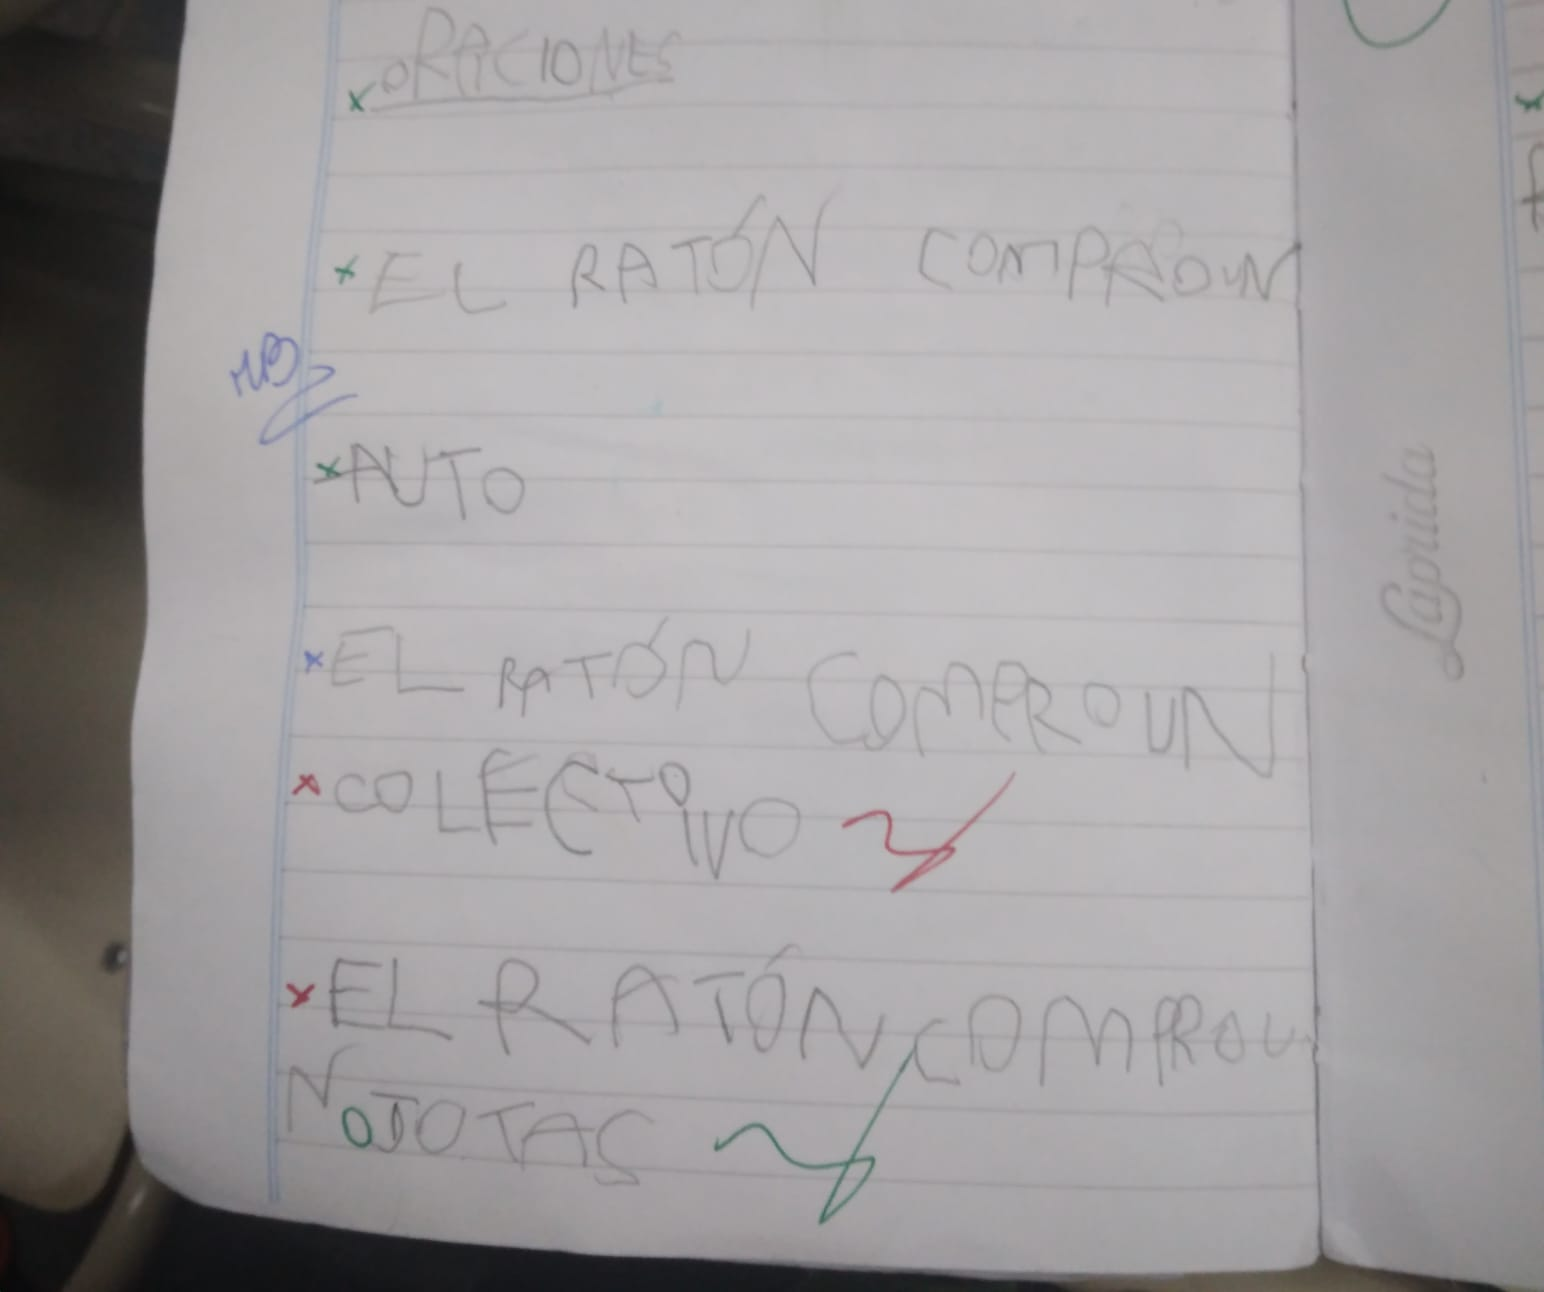 ORACIONES
EL RATÓN COMPROUN
MB
AUTO
EL RATÓN COMPROUN
COLECTIVO
EL RATÓN COMPROU
NOJOTAS
Laprida